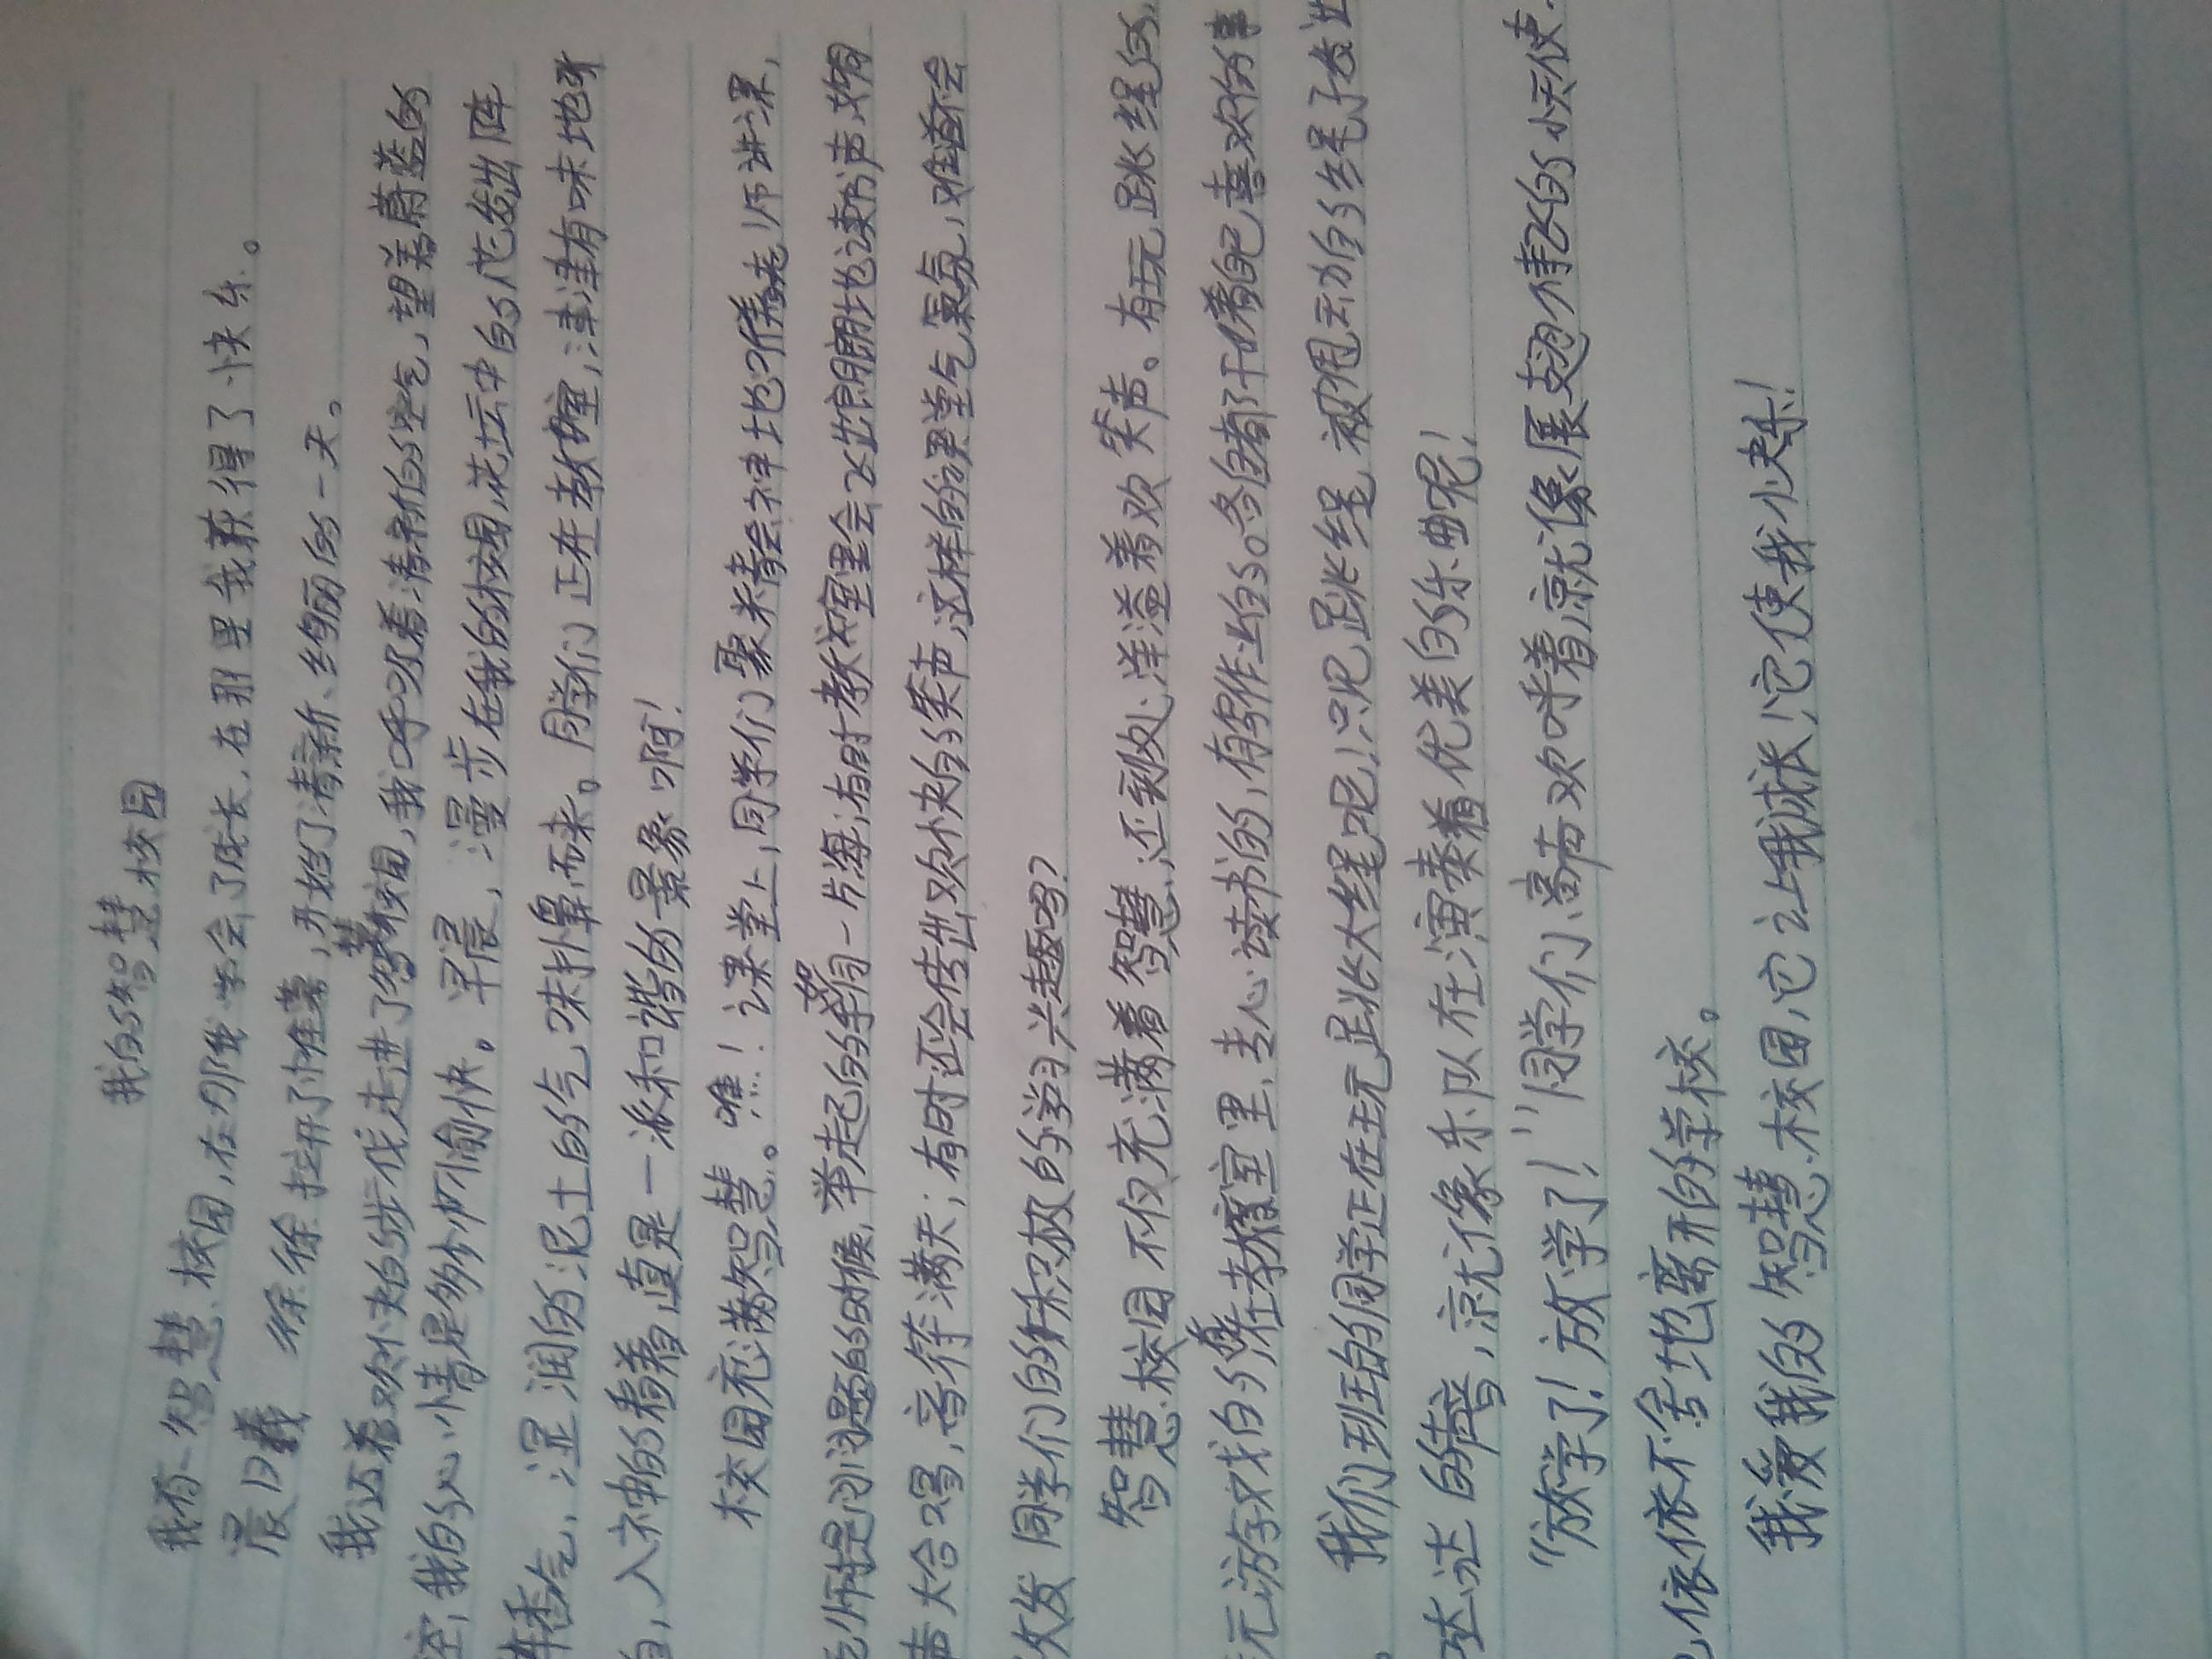 我的智慧校园
我有一智慧校园,在那我学会了成长,在那里我获得了快乐。
晨曦徐徐拉开了帷幕,开始了清新、绚丽的一天。
我迈着欢快的步伐走进了智慧校园,我呼吸着清新的空气,望着蔚蓝的
空,我的心情是多么愉快。早晨,漫步在我的校园,花坛中的花发出阵
阵香气,湿润的泥土的气味扑鼻而来。同学们正在教室,津津有味地
,入神的看着,真是一派和谐的景象啊!
校园充满智慧。“唯…!课堂上,同学们聚精会神地听老师讲课,
老师提问问题的时候,举起的手若同一片海;有时教室里会飞出朗朗地读书声,
声大合唱,音符满天;有时还会传出欢快的笑声,这样的课堂气氛,难道不会
激发同学们的积极的学习兴趣吗?
智慧校园不仅充满着智慧,还到处洋溢着欢笑声。有玩跳绳的,
玩游戏的,在教室里专心读书的,有写作业的。各自都干着自己喜欢的事
。我们班的同学正在玩跳大绳呢!只见跳长绳被甩动的绳子发出
达达的声音,就像乐队在演奏着优美的乐曲呢!
“放学了!放学了!”同学们高声欢呼着,就像展翅待飞的小天使.
依依不舍地离开的学校。
我爱我的智慧校园,它让我成长!它使我快乐!